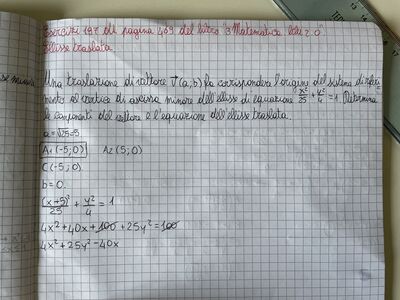 Esercizi 197 di pagina 409 del libro 3 Matematica blu 2.0
Ellisse traslata
Una traslazione di vettore v⃗(a,b) fa corrispondere l'origine del sistema di riferi
mento al vertice di ascissa minore dell'ellisse di equazione x²/25 + y²/4 = 1. Determina
le componenti del vettore e l'equazione dell'ellisse traslata.
a = √25 = 5
A₁(-5;0) A₂(5;0)
C(-5;0)
b = 0
(x+5)²/25 + y²/4 = 1
4x² + 40x + 100 + 25y² = 100
4x² + 25y² - 40x